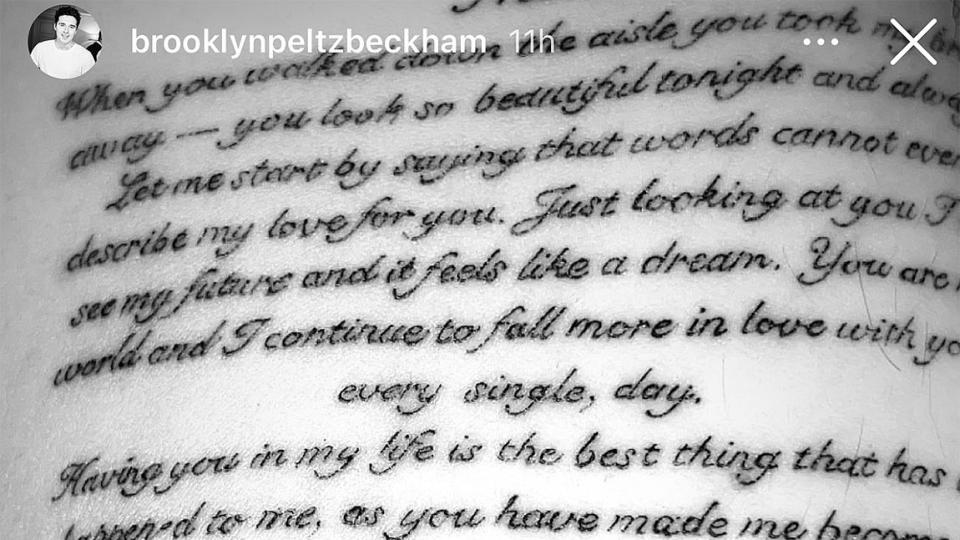 brooklynpeltzbeckham 11h
When you walked down the aisle, you took my
away — you look so beautiful tonight and
Let me start by saying that words cannot
describe my love for you. Just looking at you I
see my future and it feels like a dream. You are
world and I continue to fall more in love with
every single, day.
Having you in my life is the best thing that has
happened to me, as you have made me